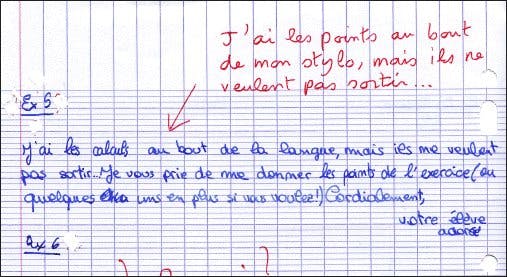 J'ai les points au bout
de mon stylo, mais ils ne
veulent pas sortir...
Ex 5
J'ai les calculs au bout de la langue, mais ils ne veulent
pas sortir...Je vous prie de me donner les points de l'exercice (ou
quelques uns en plus si vous voulez!) Cordialement,
votre élève
adorée
Ex 6